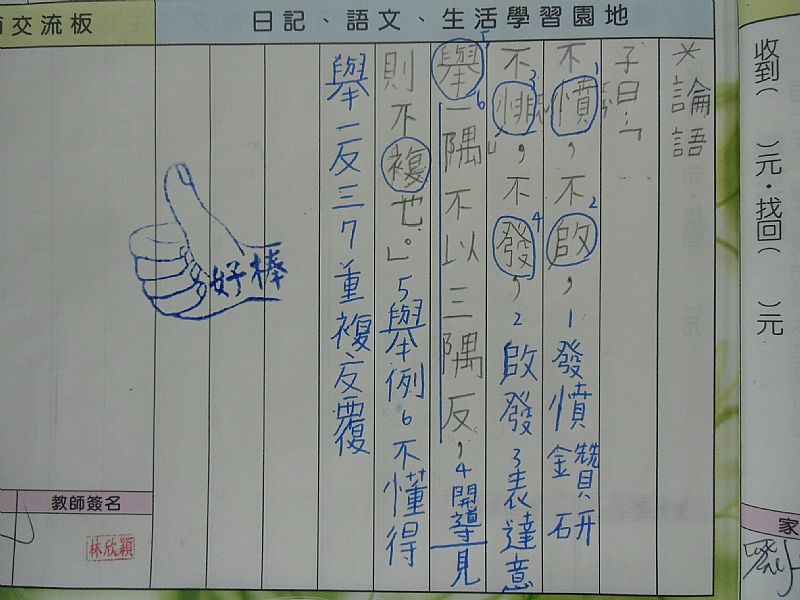 收到(　　)元・找回(　　)元
日記、語文、生活學習園地
交流板
*論語
子曰:「
不憤,不啟,1發憤鑽研
不悱,不發,2啟發3表達意
舉一隅不以三隅反,4開導見
則不複也。」5舉例6不懂得
舉一反三7重複、反覆
好棒
教師簽名
林欣穎
家